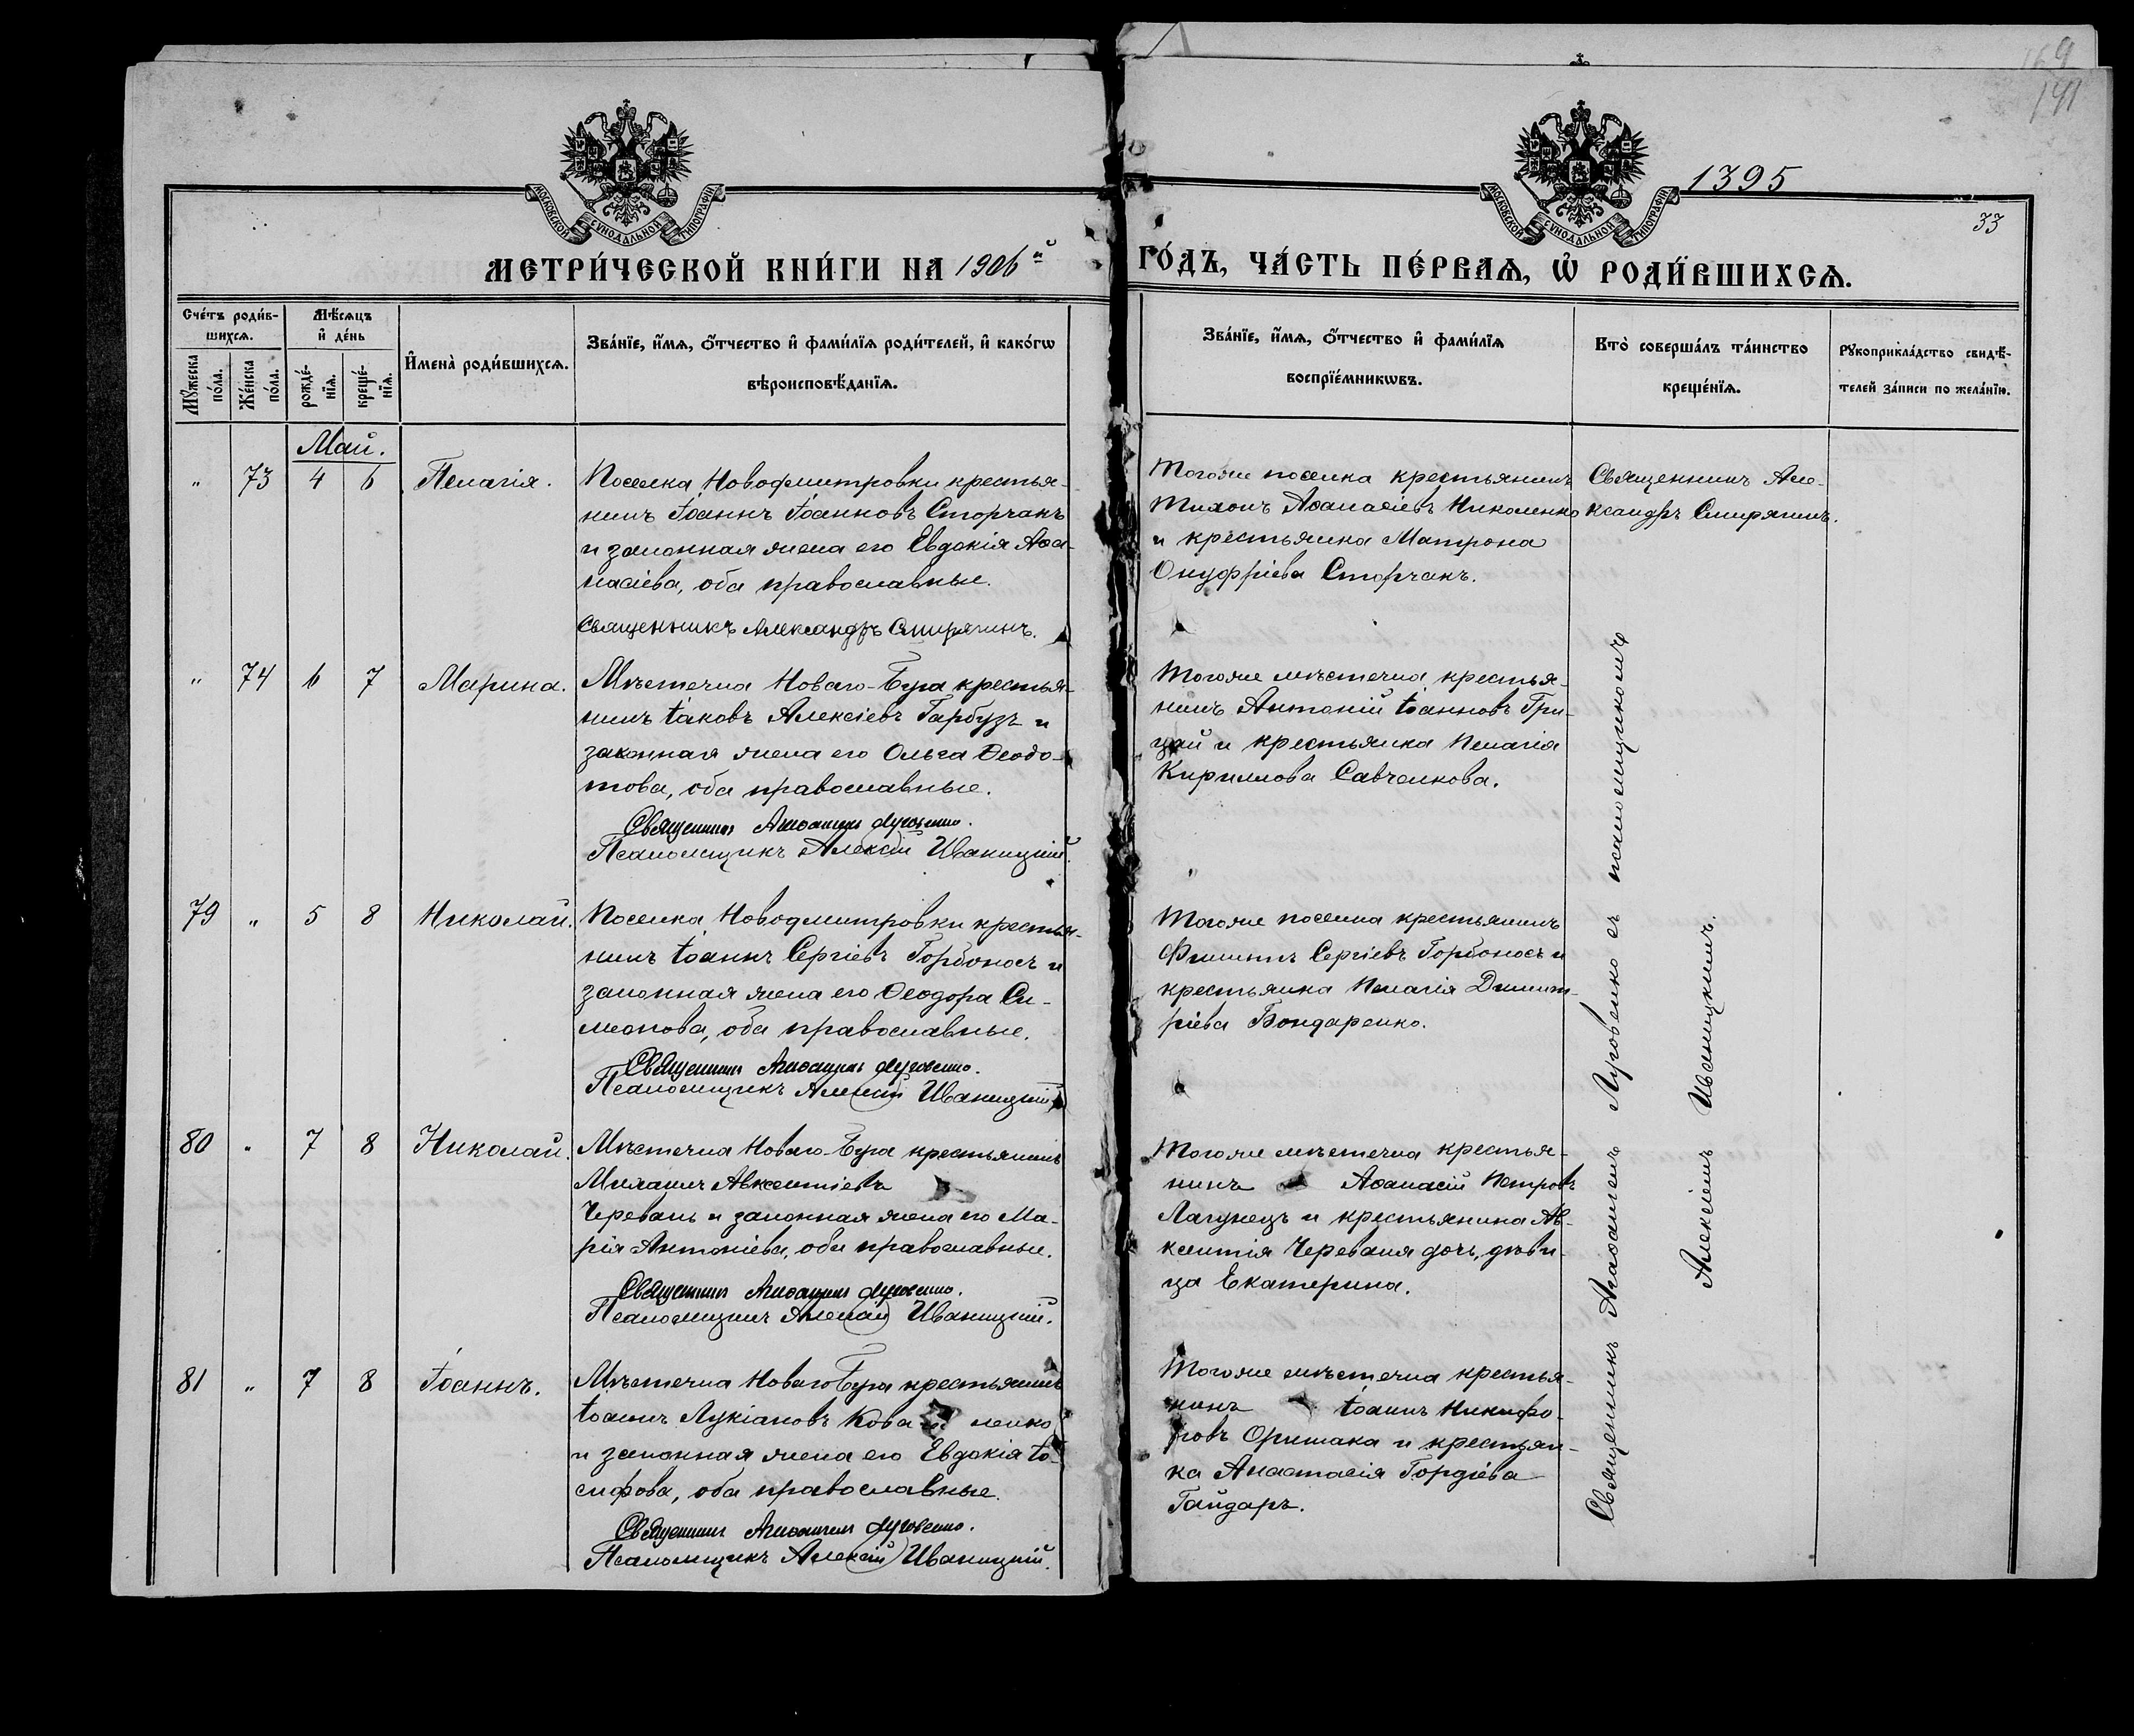 169
141
1395
33
МОСКОВСКОЙ СѴНОДАЛЬНОЙ ТИПОГРАФІИ
МОСКОВСКОЙ СѴНОДАЛЬНОЙ ТИПОГРАФІИ
МЕТРИ́ЧЕСКОЙ КНИ́ГИ НА 1906й
ГО́ДЪ, ЧА́СТЬ ПЕ́РВАѦ, Ѡ҆ РОДИ́ВШИХСѦ.
Сче́тъ роди́в-
шихсѧ.
Мꙋ́жеска по́ла.
Же́нска по́ла.
Мѣ́сѧцъ
и҆ де́нь
рожде́-
нїѧ.
креще́-
нїѧ.
И҆мена̀ роди́вшихсѧ.
Зва́нїе, и҆́мѧ, ѻ҆́тчество и҆ фами́лїѧ роди́телей, и҆ како́гѡ
вѣроисповѣ́данїѧ.
Зва́нїе, и҆́мѧ, ѻ҆́тчество и҆ фами́лїѧ
воспрїе́мникѡвъ.
Кто̀ соверша́лъ та́инство
креще́нїѧ.
Рꙋкоприкла́дство свидѣ́-
телей за́писи по жела́нїю.
Май.
" 73 4 6 Пелагія.
Поселка Новодмитровки крестья-
нинъ Іоаннъ Іоанновъ Сторчакъ
и законная жена его Евдокія Аѳа-
насіева, оба православные.
Священникъ Александръ Смирягинъ.
Тогоже поселка крестьянинъ
Тихонъ Аѳанасіевъ Николенко
и крестьянка Матрона
Онуфріева Сторчакъ.
Священникъ Але-
ксандръ Смирягинъ.
" 74 6 7 Марина.
Мѣстечка Новаго-Буга крестья-
нинъ Іаковъ Алексіевъ Гарбузъ и
законная жена его Ольга Ѳеодо-
това, оба православные.
Священникъ Агаѳангелъ Луговенко.
Псаломщикъ Алексій Иваницкій.
Тогоже мѣстечка крестья-
нинъ Антоній Іоанновъ Гри-
цай и крестьянка Пелагія
Кириллова Савченкова.
79 " 5 8 Николай.
Поселка Новодмитровки крестья-
нинъ Іоаннъ Сергіевъ Горбоносъ и
законная жена его Ѳеодора Си-
меонова, оба православные.
Священникъ Агаѳангелъ Луговенко.
Псаломщикъ Алексій Иваницкій
Тогоже поселка крестьянинъ
Филиппъ Сергіевъ Горбоносъ и
крестьянка Пелагія Димит-
ріева Бондаренко.
80 " 7 8 Николай.
Мѣстечка Новаго-Буга крестьянинъ
Михаилъ Авксентіевъ
Черевань и законная жена его Ма-
рія Антоніева, оба православные.
Священникъ Агаѳангелъ Луговенко.
Псаломщикъ Алексій Иваницкій.
Тогоже мѣстечка крестья-
нинъ Аѳанасій Петровъ
Лагунецъ и крестьянина Ав-
ксентія Череваня дочь, дѣви-
ца Екатерина.
81 " 7 8 Іоаннъ.
Мѣстечка Новаго Буга крестьянинъ
Іоаннъ Лукіановъ Кова ленко
и законная жена его Евдокія Іо-
сифова, оба православные.
Священникъ Агаѳангелъ Луговенко.
Псаломщикъ Алексій Иваницкій.
Тогоже мѣстечка крестья-
нинъ Іоаннъ Никифо-
ровъ Оришака и крестьян-
ка Анастасія Гордіева
Гайдаръ.
Священникъ Агаѳангелъ Луговенко съ псаломщикомъ
Алексіемъ Иваницкимъ.